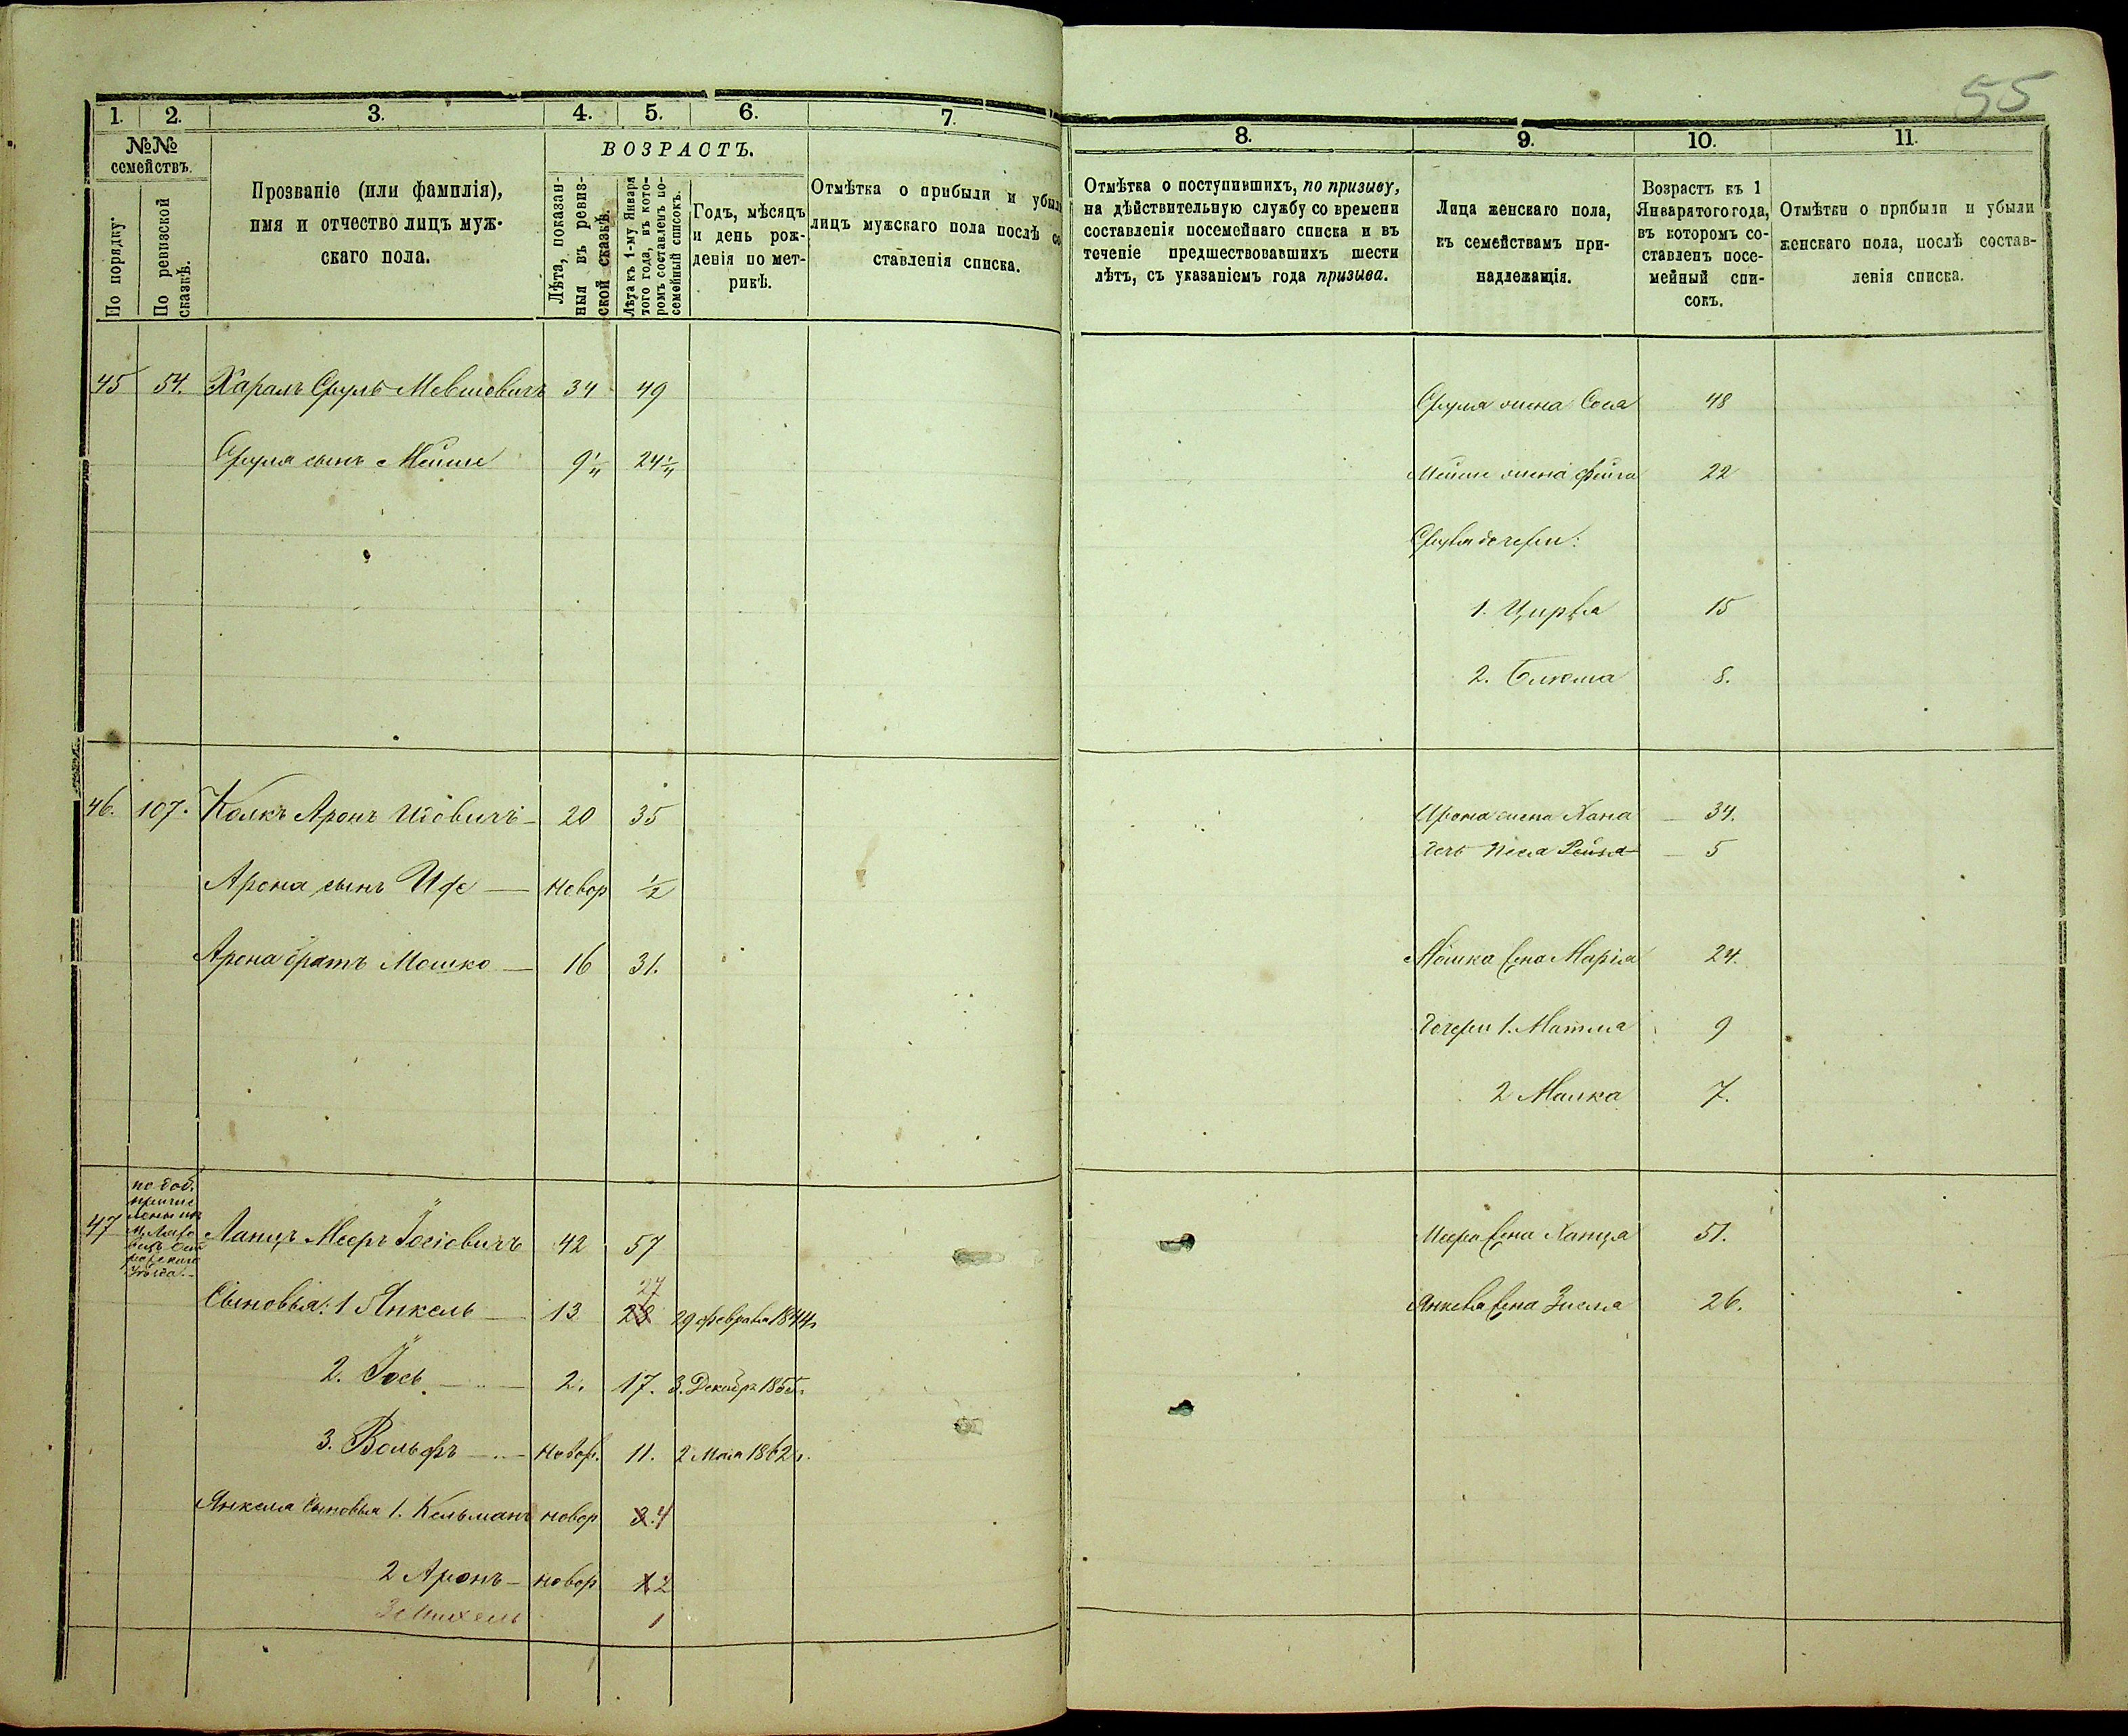 55
1. 2. 3. 4. 5. 6. 7.
№№ семействъ.
По порядку.
По ревизской сказкѣ.
Прозваніе (или фамилія),
имя и отчество лицъ муж-
скаго пола.
ВОЗРАСТЪ.
Лѣта, показан-
ныя въ ревиз-
ской сказкѣ.
Лѣта къ 1-му Января
того года, въ кото-
ромъ составленъ по-
семейный списокъ.
Годъ, мѣсяцъ
и день рож-
денія по мет-
рикѣ.
Отмѣтка о прибыли и убыли
лицъ мужскаго пола послѣ со
ставленія списка.
45 54. Харалъ Сруль Мевшовичъ 34 49
Сруля сынъ Мейше 9 1/4 24 1/4
46. 107. Колкъ Аронъ Идовичъ 20 35
Арона сынъ Иде новор 1/2
Арона братъ Мошко 16 31.
по доб.
47 Ланцъ Мееръ Іосіовичъ 42 57
Сыновья: 1 Янкель 13 28 27 29 февраля 1844г
2. Іось 2. 17. 3. Декабр 1855г.
3. Вольфъ новор. 11. 2 Мая 1862г.
Янкеля сыновья 1. Кельманъ новор 3. 4
2 Аронъ новор 1 2
3 Михель 1
8. 9. 10. 11.
Отмѣтка о поступившихъ, по призыву,
на дѣйствительную службу со времени
составленія посемейнаго списка и въ
теченіе предшествовавшихъ шести
лѣтъ, съ указаніемъ года призыва.
Лица женскаго пола,
къ семействамъ при-
надлежащія.
Возрастъ къ 1
Января того года,
въ которомъ со-
ставленъ посе-
мейный спи-
сокъ.
Отмѣтки о прибыли и убыли
женскаго пола, послѣ состав-
ленія списка.
Сруля жена Сося 48
Мейше жена Фейга 22
Сруля дочери:
1. Цирля 15
2. Блюма 8.
Арона жена Хана 34.
дочь Песя Рейза 5
Мошка жена Марія 24.
дочери 1. Матля 9
2 Малка 7.
Меера жена Ханца 51.
Янкеля жена Зисля 26.